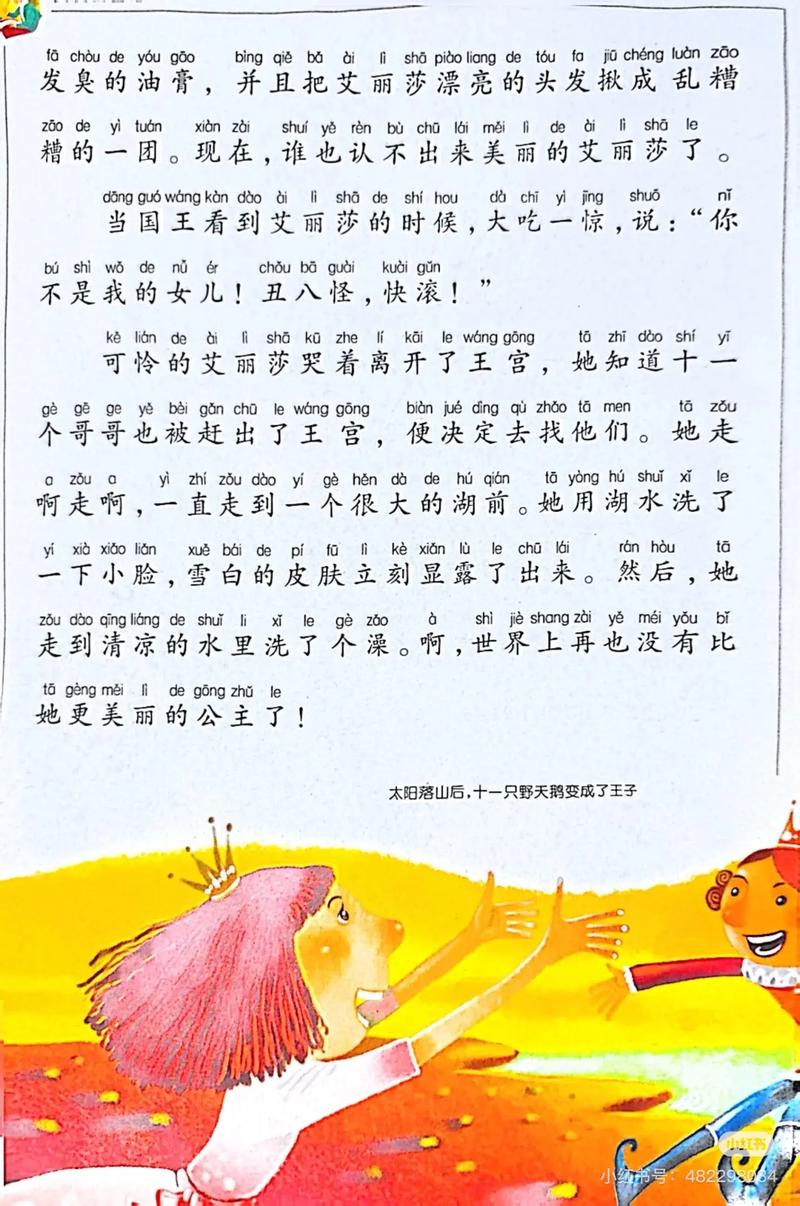 fā chòu de yóu gāo bìng qiě bǎ ài lì shā piào liang de tóu fa jiū chéng luàn zāo
发臭的油膏，并且把艾丽莎漂亮的头发揪成乱糟
zāo de yì tuán xiàn zài shuí yě rèn bù chū lái měi lì de ài lì shā le
糟的一团。现在，谁也认不出来美丽的艾丽莎了。
dāng guó wáng kàn dào ài lì shā de shí hou dà chī yì jīng shuō nǐ
当国王看到艾丽莎的时候，大吃一惊，说：“你
bú shì wǒ de nǚ ér chǒu bā guài kuài gǔn
不是我的女儿！丑八怪，快滚！”
kě lián de ài lì shā kū zhe lí kāi le wáng gōng tā zhī dào shí yī
可怜的艾丽莎哭着离开了王宫，她知道十一
gè gē ge yě bèi gǎn chū le wáng gōng biàn jué dìng qù zhǎo tā men tā zǒu
个哥哥也被赶出了王宫，便决定去找他们。她走
a zǒu a yì zhí zǒu dào yí gè hěn dà de hú qián tā yòng hú shuǐ xǐ le
啊走啊，一直走到一个很大的湖前。她用湖水洗了
yí xià xiǎo liǎn xuě bái de pí fū lì kè xiǎn lù le chū lái rán hòu tā
一下小脸，雪白的皮肤立刻显露了出来。然后，她
zǒu dào qīng liáng de shuǐ li xǐ le gè zǎo à shì jiè shang zài yě méi yǒu bǐ
走到清凉的水里洗了个澡。啊，世界上再也没有比
tā gèng měi lì de gōng zhǔ le
她更美丽的公主了！
太阳落山后，十一只野天鹅变成了王子
小红书
小红书号：482298084